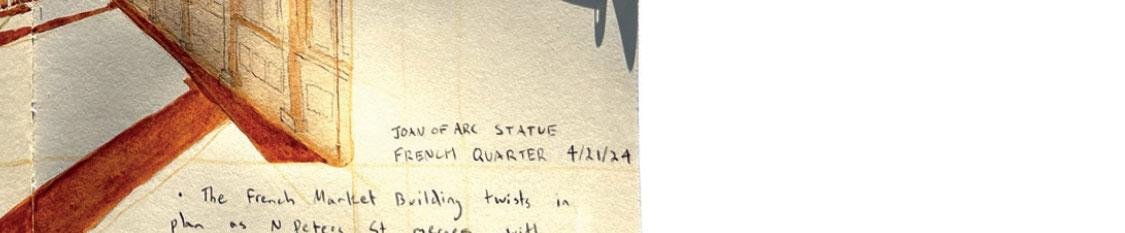 JOAN OF ARC STATUE
FRENCH QUARTER 4/21/24
• The French Market Building twists in
plan as N Peters St merges with